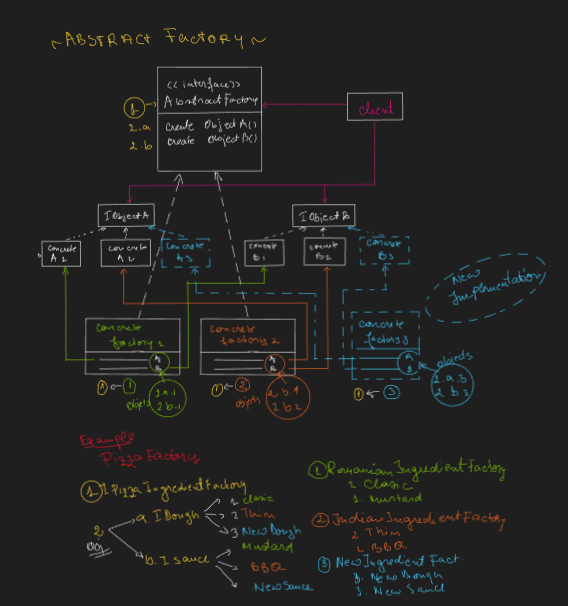 ~ ABSTRACT Factory ~
<<interface>>
Abstract Factory
1
2.a
create Object A()
2.b
create Object B()
client
I Object A
I Object B
concrete A1
concrete A2
concrete A3
concrete B1
concrete B2
concrete B3
New Implementation
concrete factory 1
concrete factory 2
concrete factory 3
A
B
A
B
A
B
objects
1
1
objects
2.a.1
2.b.1
1
2
objects
2 b 2
1
3
2.a.3
2 b 3
Example
Pizza Factory
1 I Pizza Ingredient Factory
2
obj
a. I Dough
1 clasic
2 Thin
3 New Dough
b. I sauce
Mustard
BBQ
New Sauce
1 Romanian Ingredient Factory
Clasic
Mustard
2 Indian Ingredient Factory
2 Thin
2 BBQ
3 New Ingredient Fact.
3. New Dough
3. New Sauce